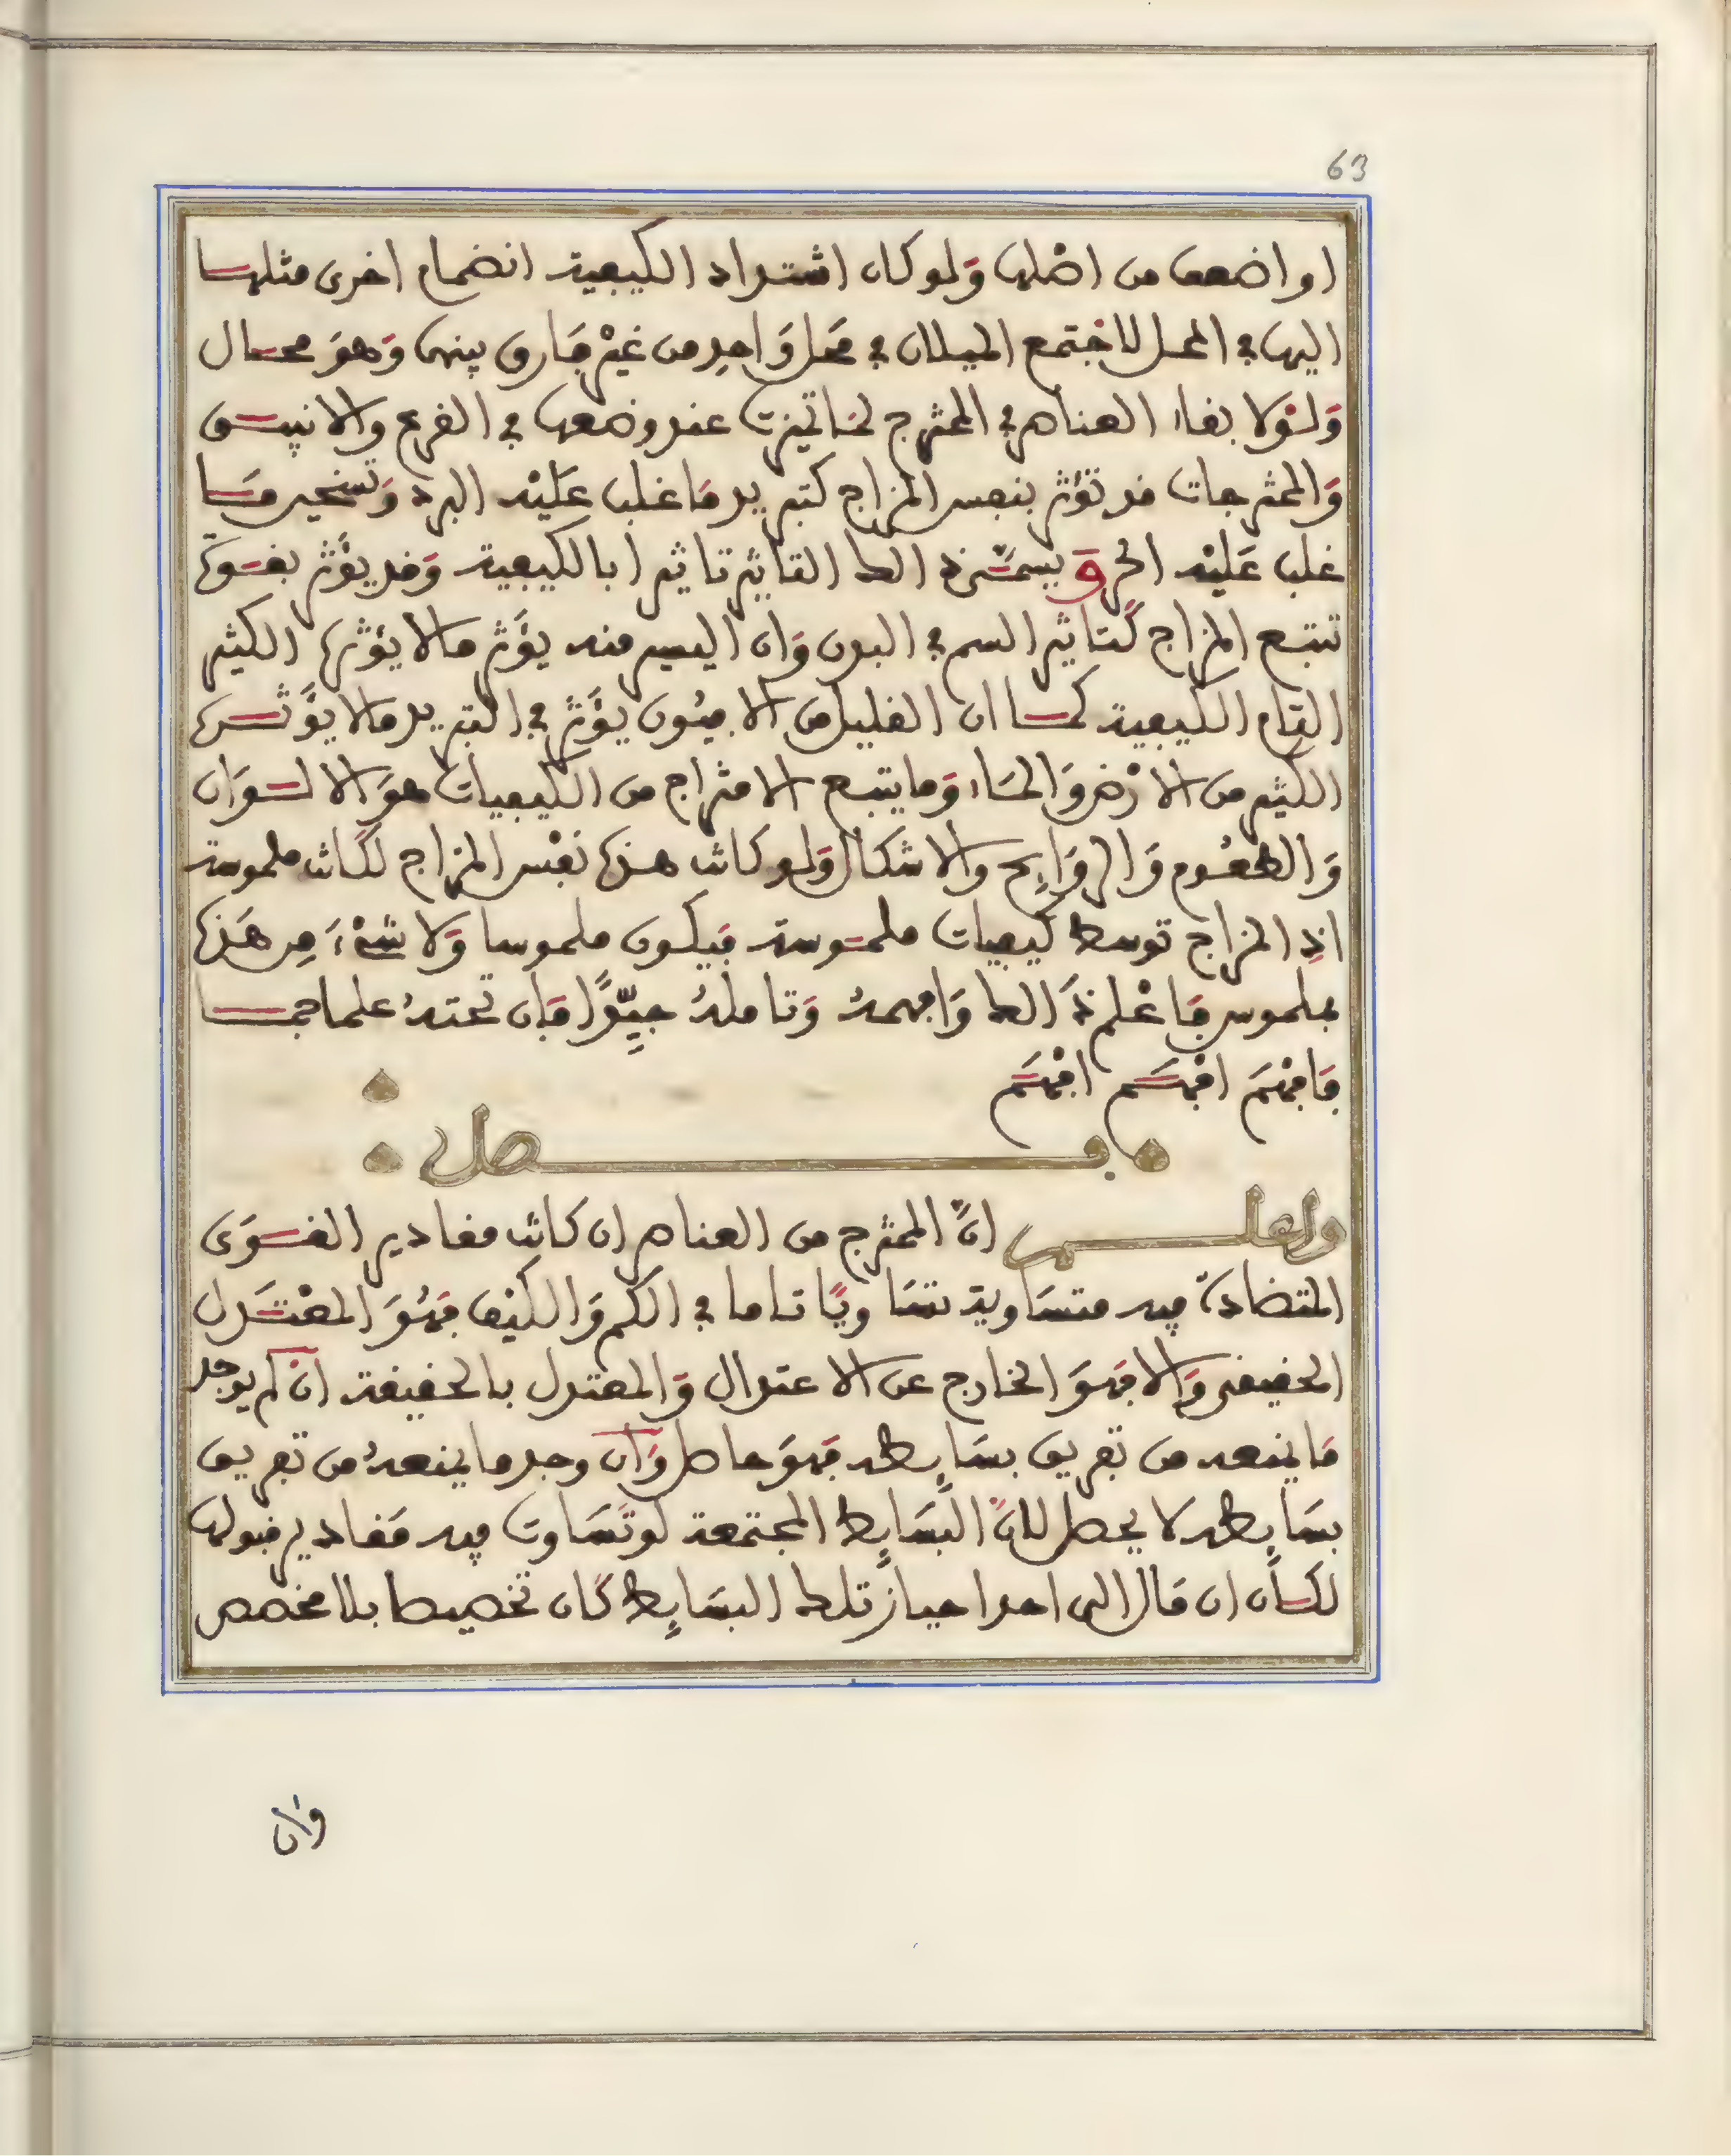 63
او اضعف من اصلها وَلو كان اشتداد الكيفية انضمام اخرى مثلها
اليها في المحل لاجتمع الميلان في محل وَاحِد من غيْر فَارق بينهما وَهوَ محال
وَلوْلا بقاء العناصر في الممتزج لما تميزت عند وضعها في القرع والانبيق
وَالممتزجات قد تؤثر بنفس المزاج كتبريد مَا غلب عَليْه البرد وَتسخين مَا
غلب عَليْه الحر وَيسمّى ذالك التاثير تاثيرا بالكيفية وَقد يؤَثر بقوة
تتبع المزاج كَتاثير السم في البدن وَان اليسير منه يؤَثر مالا يؤثره الكثير
التام الكيفية كما ان القليل من الافيُون يؤَثر في التبريد مالا يؤَثره
الكثير من الارْض وَالمَاء وَما يتبع الامتزاج من الكيفيات هوَ الالوَان
وَالطعُوم وَالروَايِح والاشكال وَلو كانت هذه نفْس المزاج لكَانت ملموسة
اذِ المزاج توسط كيفيات ملموسة فَيكون ملموسا وَلا شيْءَ مِن هَذه
بملموس فَاعْلم ذَالك وَافهمهُ وَتاملهُ جيِّدًا فَان تحتهُ علما جما
فَافهْم افهَم افهْم
فصل
واعلم انَّ الممتزج من العناصر ان كانت مقادير القوَى
المتضادّة فيه متسَاوية تسَاويًا تاما في الكم وَالكيْف فهُوَ المعْتَدل
الحقيقي وَالا فهَوَ الخارج عن الاعتدال وَالمعتدل بالحقيقة انْ لم يوجد
مَا يمنعه من تفريق بسَايِطه فهَوَ حاصل وَان وجد ما يمنعهُ من تفريق
بسَايِطه لا يحصل لانَّ البسَايِط المجتمعة لو تسَاوت فيه مَقادير قبولها
لكَان ان مَال الى احد احياز تلك البسَايِط كَان تخصيصا بلا مخصص
وان